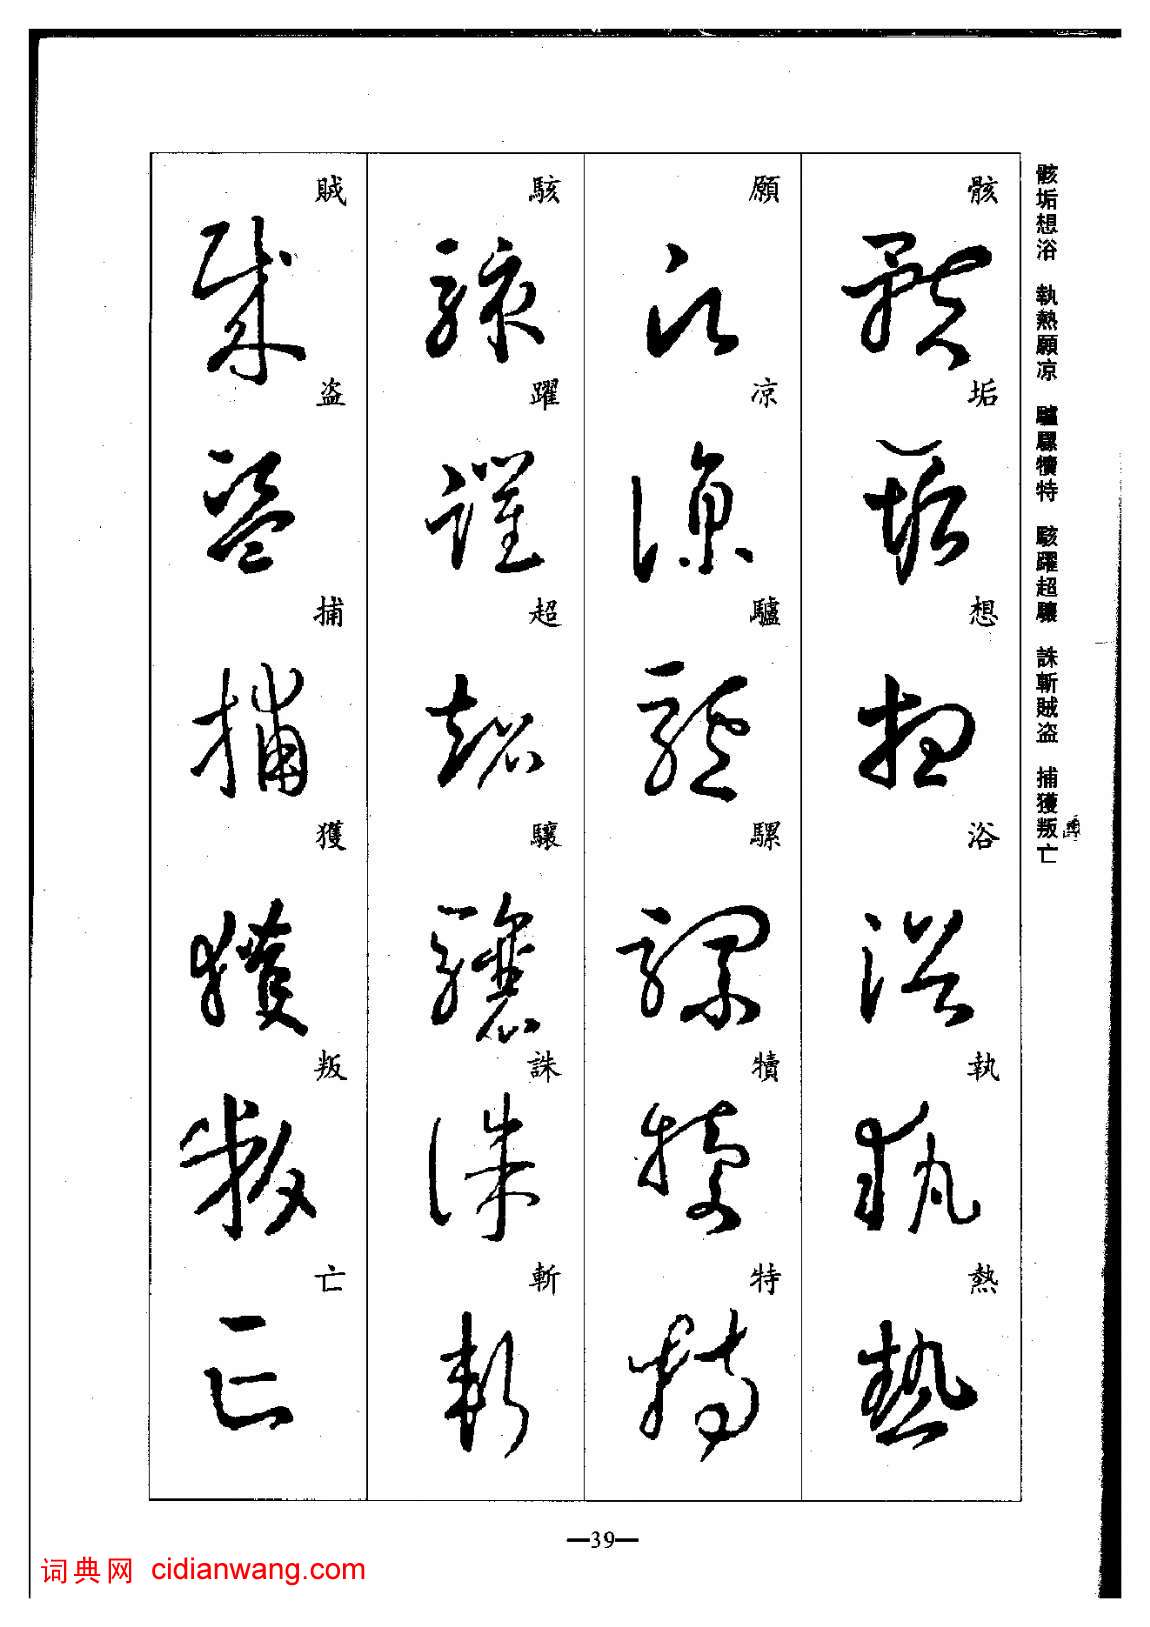 骸垢想浴 執熱願凉 驢騾犢特 駭躍超驤 誅斬賊盗 捕獲叛亡
骸垢想浴執熱
願凉驢騾犢特
駭躍超驤誅斬
賊盗捕獲叛亡
—39—
词典网 cidianwang.com